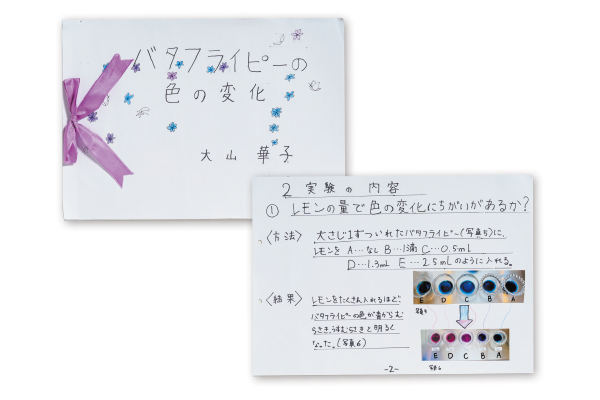 バタフライピーの
色の変化
大山 華子
2 実験の内容
① レモンの量で色の変化にちがいがあるか?
〈方法〉 大さじ1ずついれたバタフライピー(写真5)に、
レモンを A…なし B…1滴 C…0.5ml
D…1.3mL E…2.5mLのように入れる。
E D C B A
写真5
〈結果〉 レモンをたくさん入れるほど、
バタフライピーの色が青からむ
らさき、うすむらさきと明るく
なった。(写真6)
E D C B A
写真6
-2-